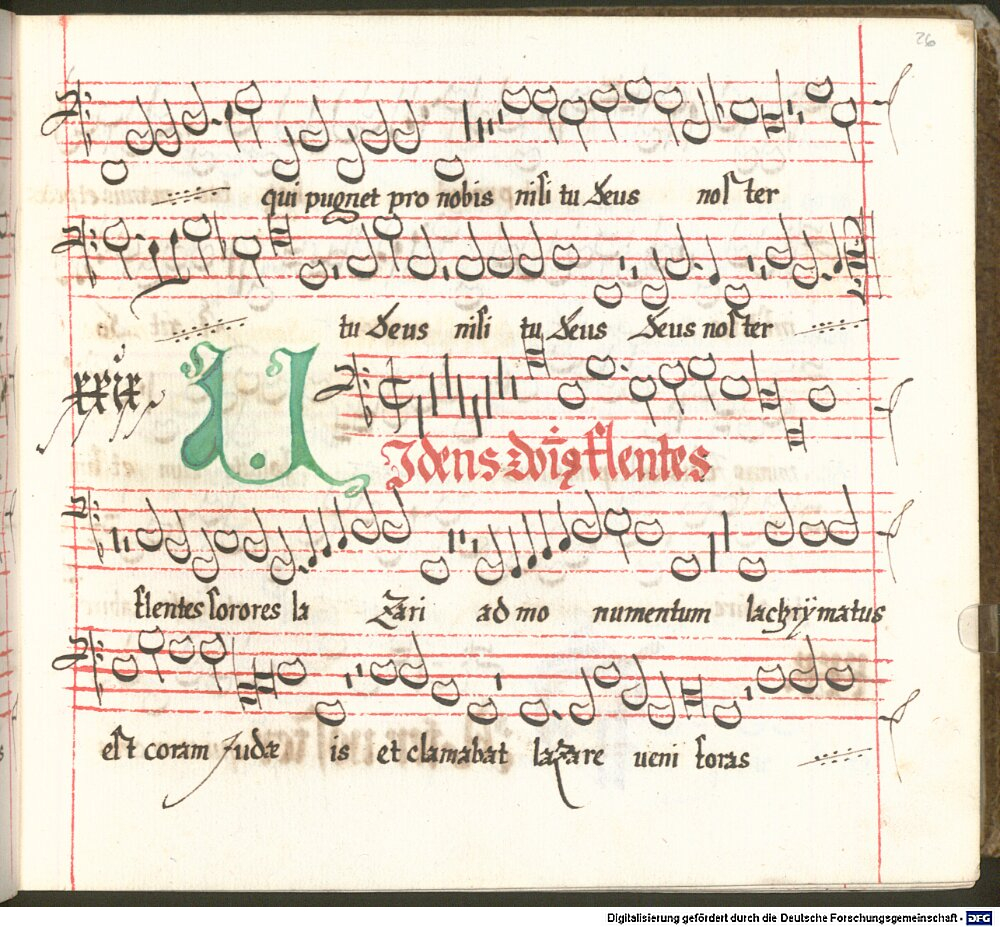 26
qui pugnet pro nobis nisi tu Deus noster
tu Deus nisi tu Deus Deus noster
xxix
VIdens dns flentes
flentes sorores la Zari ad mo numentum lachrÿmatus
est coram Judæ is et clamabat lazare veni foras
Digitalisierung gefördert durch die Deutsche Forschungsgemeinschaft - DFG